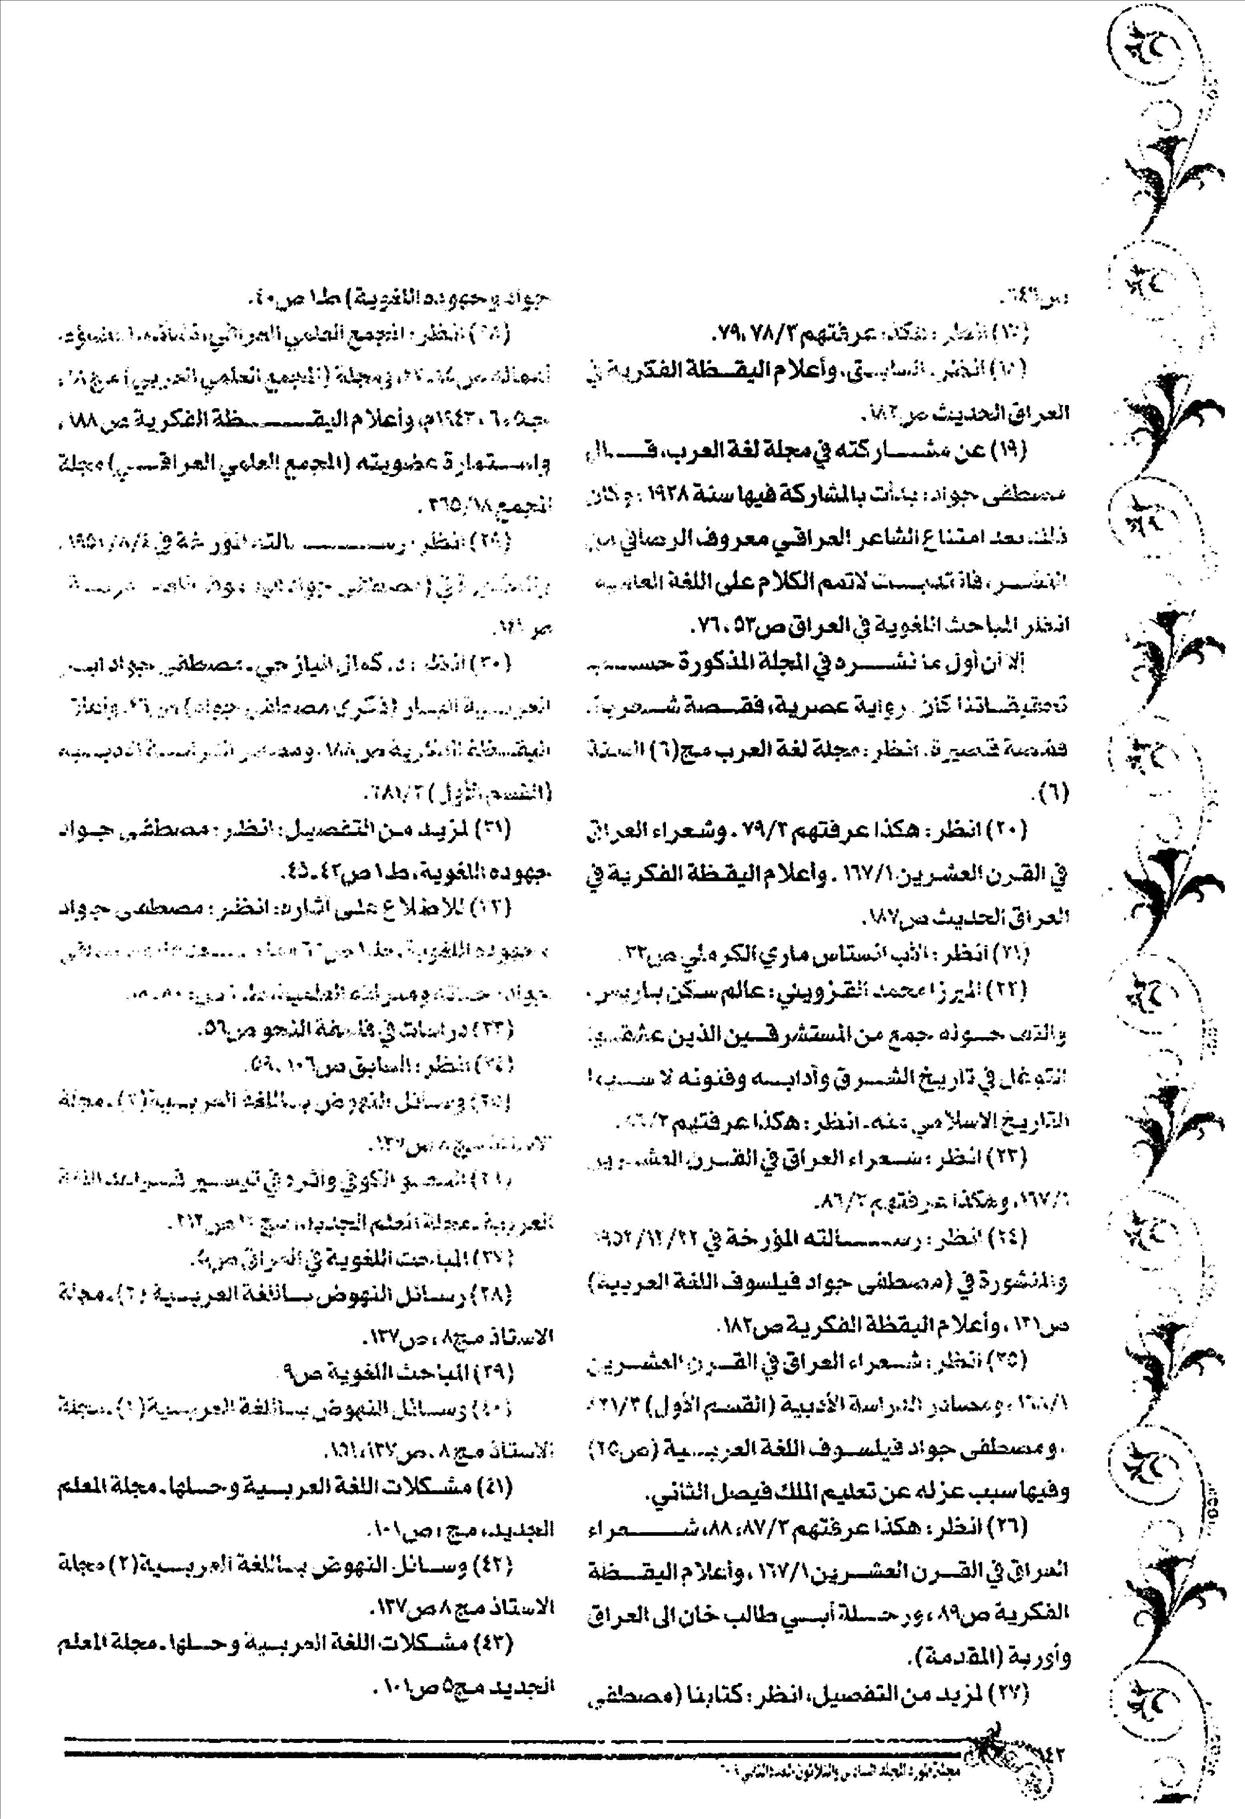 ص٦٤٦.
(١٧) انظر: هكذا عرفتهم ٧٨/٣، ٧٩.
(١٨) انظر: السابق، وأعلام اليقظة الفكرية في
العراق الحديث ص١٨٢.
(١٩) عن مشاركته في مجلة لغة العرب، قال
مصطفى جواد: بدأت بالمشاركة فيها سنة ١٩٢٨، وكان
ذلك بعد امتناع الشاعر العراقي معروف الرصافي من
النشر، لاتمم الكلام على اللغة العامية
انظر المباحث اللغوية في العراق ص٥٣، ٧٦.
إلا أن أول ما نشره في المجلة المذكورة حسب
تحقيقاتنا كان رواية عصرية، فقصة شعرية،
فقصة قصيرة. انظر: مجلة لغة العرب مج(٦) السنة
(٦).
(٢٠) انظر: هكذا عرفتهم ٧٩/٣. وشعراء العراق
في القرن العشرين ١٦٧/١. وأعلام اليقظة الفكرية في
العراق الحديث ص١٨٧.
(٢١) انظر: الأب انستاس ماري الكرملي ص٣٢.
(٢٢) الميرزا محمد القزويني: عالم سكن باريس،
والتف حوله جمع من المستشرقين الذين عشقوا
التوغل في تاريخ الشرق وآدابه وفنونه لا سيما
التاريخ الاسلامي منه. انظر: هكذا عرفتهم
(٢٣) انظر: شعراء العراق في القرن العشرين
١٦٧/١، وهكذا عرفتهم ٨٦/٣.
(٢٤) انظر: رسالته المؤرخة في ١٩٥٢/١٢/٢٢
والمنشورة في (مصطفى جواد فيلسوف اللغة العربية)
ص١٣١، وأعلام اليقظة الفكرية ص١٨٢.
(٢٥) انظر: شعراء العراق في القرن العشرين
١٦٨/١، ومصادر الدراسة الأدبية (القسم الأول)
، ومصطفى جواد فيلسوف اللغة العربية (ص٢٥)
وفيها سبب عزله عن تعليم الملك فيصل الثاني.
(٢٦) انظر: هكذا عرفتهم ٨٧/٣، ٨٨، شعراء
العراق في القرن العشرين ١٦٧/١، وأعلام اليقظة
الفكرية ص٨٩، ورحلة أبي طالب خان الى العراق
وأوربة (المقدمة).
(٢٧) لمزيد من التفصيل، انظر: كتابنا (مصطفى
جواد وجهوده اللغوية) ط١ ص٤٠.
(٢٨) انظر: المجمع العلمي العراقي،
أعماله ومجلة (المجمع العلمي العربي) مج١٨،
ج٥، ٦، ١٩٤٣م، وأعلام اليقظة الفكرية ص١٨٨،
واستمارة عضويته (المجمع العلمي العراقي) مجلة
المجمع ٣٦٥/١٨.
(٢٩) انظر: رسالته المؤرخة في
والمنشورة في (مصطفى جواد
ص١٤١.
(٣٠) انظر: د. كمال اليازجي. مصطفى جواد
العربية البار (ذكرى مصطفى جواد) ص٢٦. وأعلام
اليقظة الفكرية ص١٨٨. ومصادر الدراسة الأدبية
(القسم الأول) ٢٨١/٣.
(٣١) لمزيد من التفصيل: انظر: مصطفى جواد
جهوده اللغوية، ط١ ص٤٢ـ٤٥.
(٣٢) للاطلاع على آثاره: انظر: مصطفى جواد
وجهوده اللغوية. ط١ مصطفى
جواد: حياته ومنزلته العلمية، ط١
(٣٣) دراسات في فلسفة النحو ص٥٦.
(٣٤) انظر: السابق ص١٠٦، ٥٩.
(٣٥) وسائل النهوض باللغة العربية(٢)، مجلة
الاستاذ مج٨ ص١٣٧.
(٣٦) النحو الكوفي وأثره في تيسير قواعد اللغة
العربية. مجلة المعلم الجديد، مج١٠ ص٢١٢.
(٣٧) المباحث اللغوية في العراق ص٥.
(٣٨) رسائل النهوض باللغة العربية (٢). مجلة
الاستاذ مج٨، ص١٣٧.
(٣٩) المباحث اللغوية ص٩.
(٤٠) وسائل النهوض باللغة العربية(٢). مجلة
الاستاذ مج٨، ص١٣٧، ١٥١.
(٤١) مشكلات اللغة العربية وحلها. مجلة المعلم
الجديد، مج ص١٠١.
(٤٢) وسائل النهوض باللغة العربية(٢) مجلة
الاستاذ مج٨ ص١٣٧.
(٤٣) مشكلات اللغة العربية وحلها. مجلة المعلم
الجديد مج٥ ص١٠١.
مجلة المورد المجلد السادس والثلاثون العدد الثاني